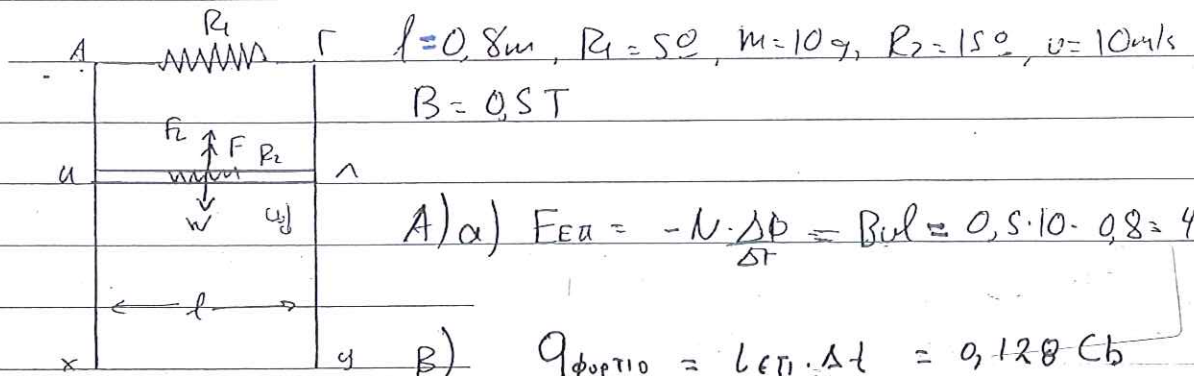 R1
A Γ l=0,8m, R1=5Ω, m=10g, R2=15Ω, υ=10m/s
B=0,5T
FL F R2
κ Λ
w
A)α) Eεπ = -N·ΔΦ/Δt = Bυl = 0,5·10·0,8=4
l
x y B) qφορτιο = Iεπ·Δt = 0,128 Cb